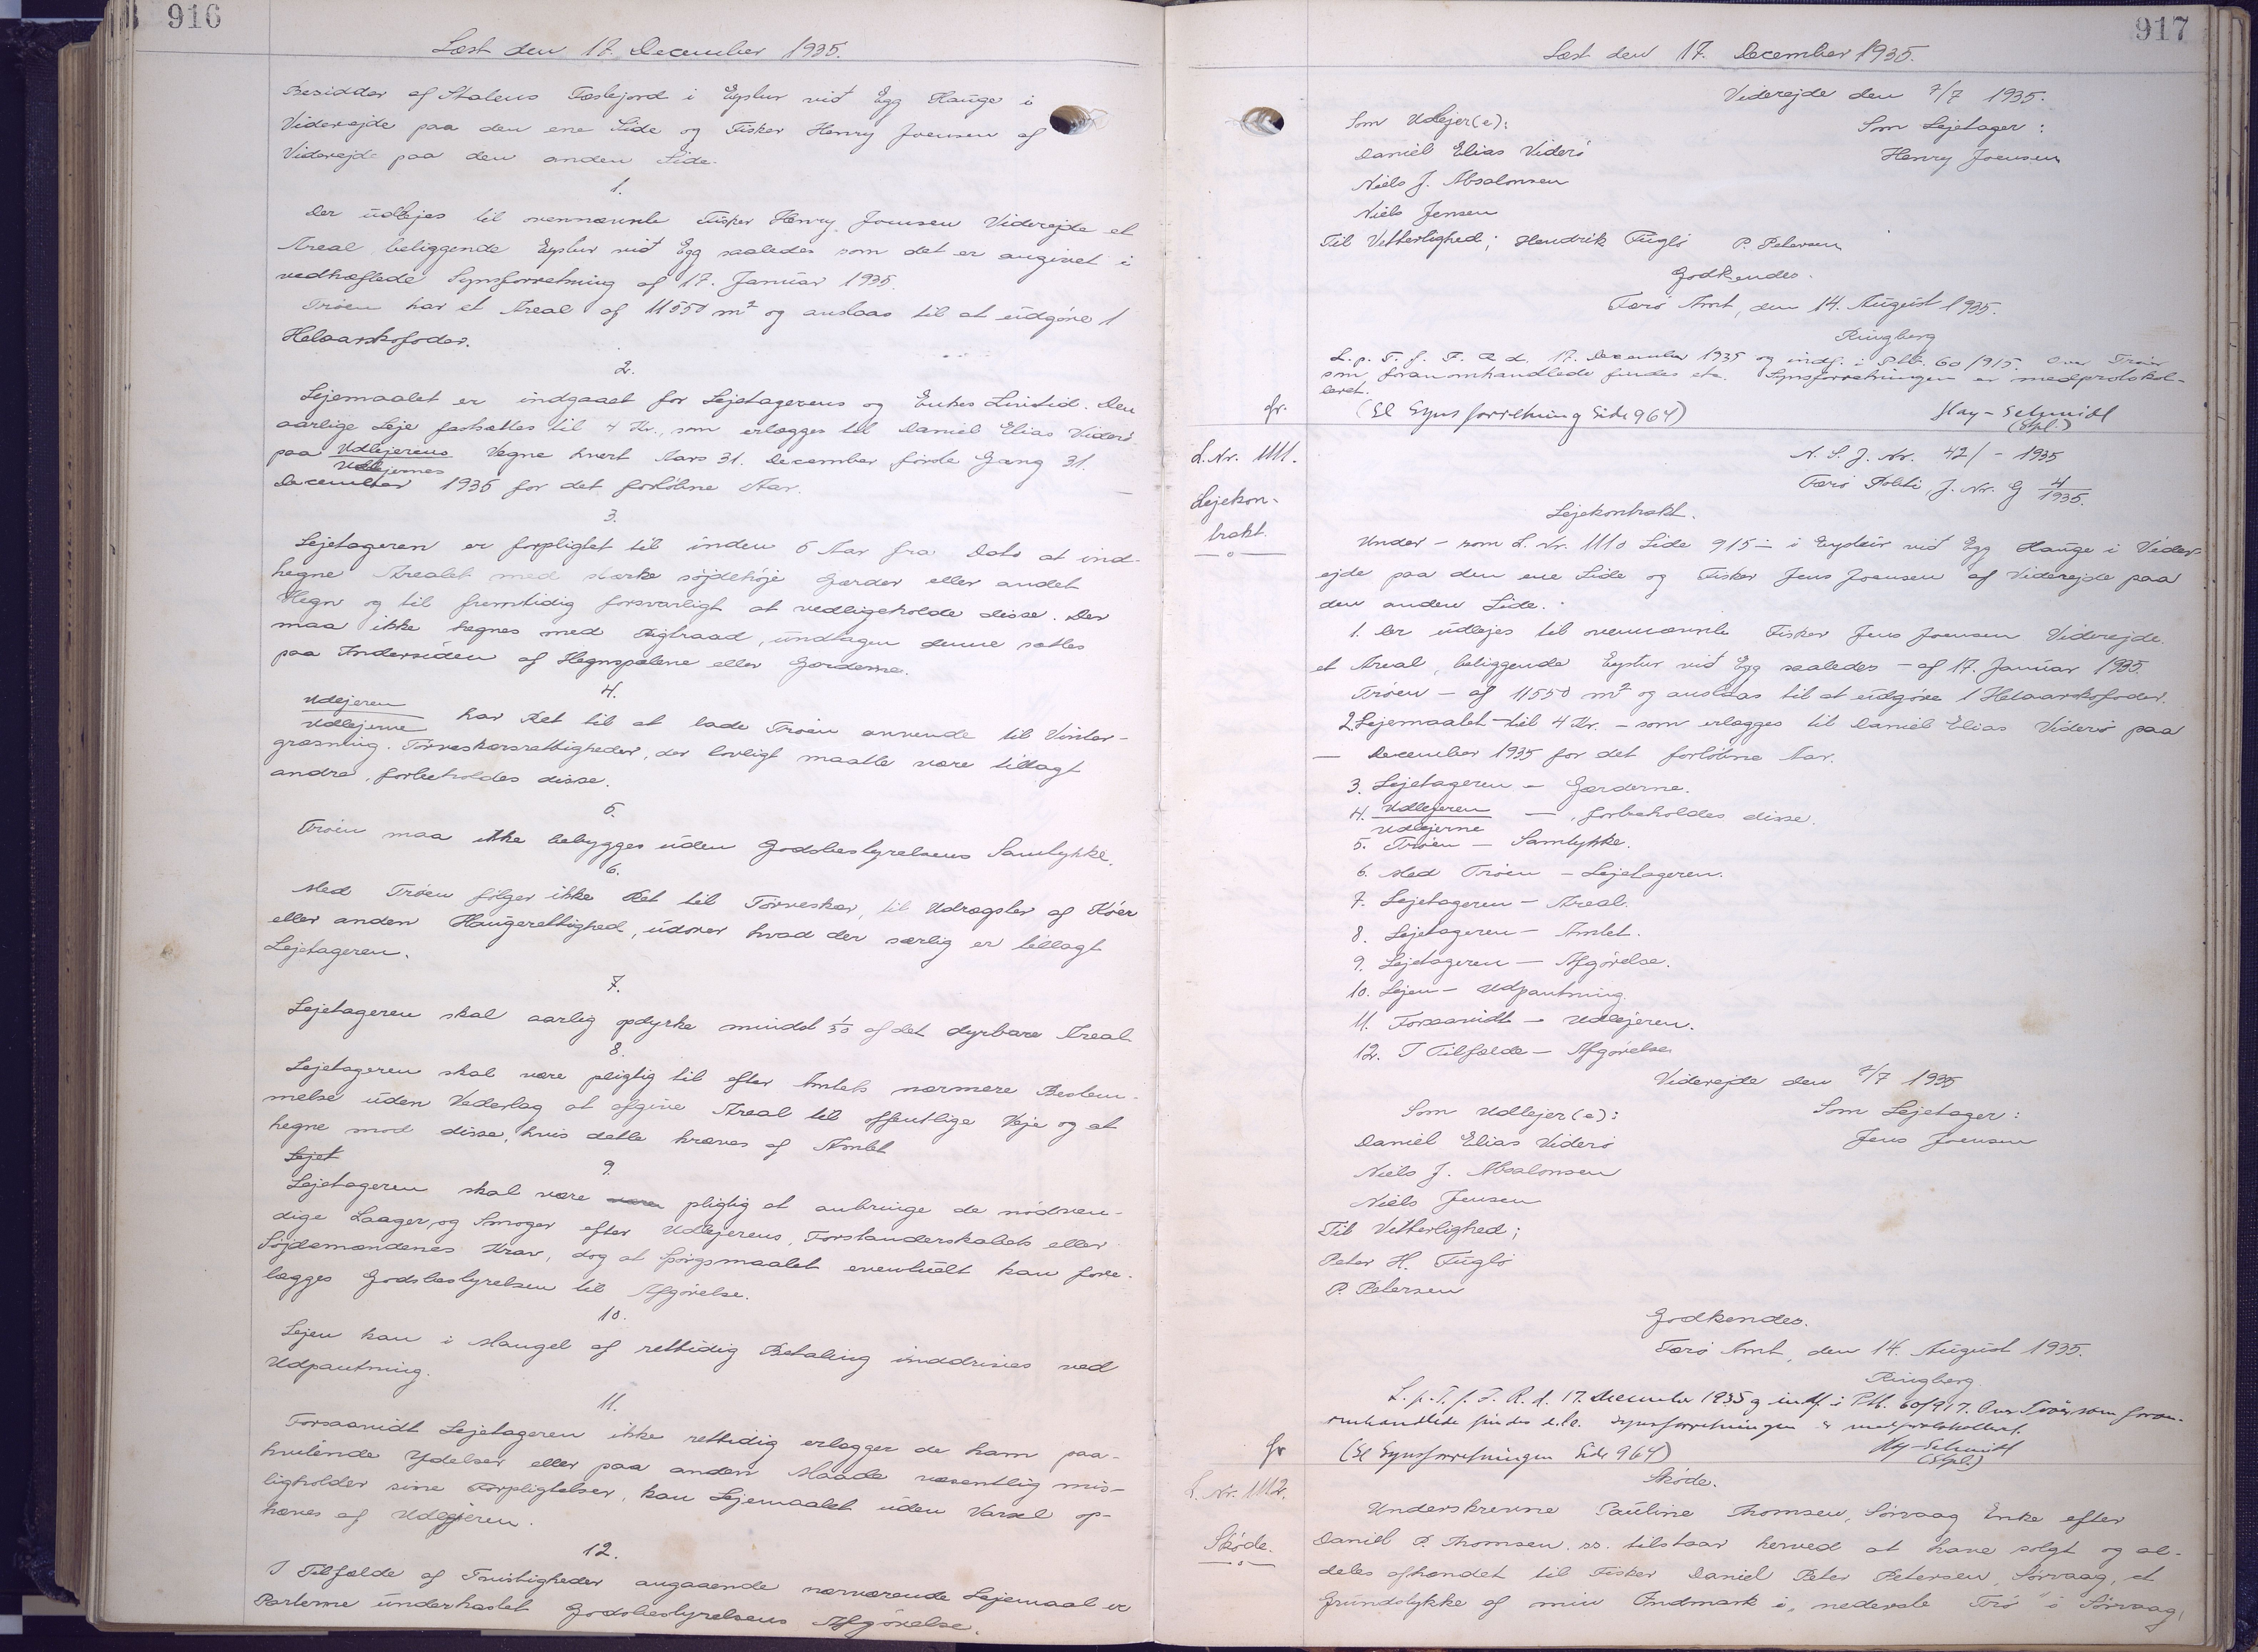 916
Læst den 17. December 1935.
Besidder af Statens Fæstejord i Eystur við Egg Hauge i
Viderejde paa den ene Side og Fisker Henry Joensen af
Viderejde paa den anden Side.
1.
Der udlejes til ovennævnte Fisker Henry Joensen Viderejde et
Areal beliggende Eystur við Egg saaledes som det er angivet i
vedhæftede Synsforretning af 17. Januar 1935.
Trøen har et Areal af 11550 m² og anslaas til at udgøre 1
Helaarskofoder.
2.
Lejemaalet er indgaaet for Lejetagerens og Enkes Livstid. Den
aarlige Leje fastsættes til 4 Kr., som erlægges til Daniel Elias Viderø
paa Udlejerens Vegne hvert Aars 31. December første Gang 31.
Udlejernes
December 1935 for det forløbne Aar.
3.
Lejetageren er forpligtet til inden 5 Aar fra Dato at ind-
hegne Arealet med stærke søjdehøje Gærder eller andet
Hegn og til fremtidig forsvarligt at vedligeholde disse. Der
maa ikke hegnes med Pigtraad, undtagen denne sættes
paa Indersiden af Hegnspælene eller Gærderne.
4.
Udejeren
Udlejerne har Ret til at lade Trøen anvende til Vinter-
græsning. Tørveskærsrettigheder, der lovligt maatte være tillagt
andre, forbeholdes disse.
5.
Trøen maa ikke bebygges uden Godsbestyrelsens Samtykke.
6.
Med Trøen følger ikke Ret til Tørveskær, til Udragster af Køer
eller anden Haugerettighed, udover hvad der særlig er tillagt
Lejetageren.
7.
Lejetageren skal aarlig opdyrke mindst 1/50 af det dyrbare Areal
8.
Lejetageren skal være pligtig til efter Amtets nærmere Bestem-
melse uden Vederlag at afgive Areal til offentlige Veje og at
hegne mod disse, hvis dette kræves af Amtet
Lejet
9.
Lejetageren skal være pligtig at anbringe de nødven-
dige Laager og Smoger efter Udlejerens, Forstanderskabets eller
Søjdemændenes Krav, dog at Spørgsmaalet eventuelt kan fore-
lægges Godsbestyrelsen til Afgørelse.
10.
Lejen kan i Mangel af rettidig Betaling inddrives ved
Udpantning.
11.
Forsaavidt Lejetageren ikke rettidig erlægger de ham paa-
hvilende Ydelser eller paa anden Maade væsentlig mis-
ligholder sine Forpligtelser, kan Lejemaalet uden Varsel op-
hæves af Udlejeren.
12.
I Tilfælde af Tvistigheder angaaende nærværende Lejemaal er
Parterne underkastet Godsbestyrelsens Afgørelse.
917
Læst den 17. December 1935.
Viderejde den 7/7 1935.
Som Udlejer(e):
Som Lejetager:
Daniel Elias Viderø
Henry Joensen
Niels J. Absalonsen
Niels Jensen
Til Vitterlighed; Hendrik Fuglø P. Petersen
Godkendes.
Færø Amt, den 14. August 1935.
Ringberg
L. p. T. f. F. R. d. 17. December 1935 og indf. i Ptb. 60/915. Om Trøen
som foranomhandlede findes etc. Synsforretningen er medprotokol-
leret.
gr. (Se Synsforretning Side 964)
Hay-Schmidt
(Spl.)
L. Nr. 1111.
Lejekon-
trakt.
N. S. J. Nr. 42/ - 1935
Færø Politi J. Nr. G 4/1935.
Lejekontrakt.
Under - som L. Nr. 1110 Side 915 - i Eystur við Egg Hauge i Vider-
ejde paa den ene Side og Fisker Jens Joensen af Viderejde paa
den anden Side.
1. Der udlejes til ovennævnte Fisker Jens Joensen Viderejde.
et Areal, beliggende Eystur við Egg saaledes - af 17. Januar 1935.
Trøen - af 11550 m² og anslaas til at udgøre 1 Helaarskofoder.
2. Lejemaalet - til 4 Kr. - som erlægges til Daniel Elias Viderø paa
— December 1935 for det forløbne Aar.
3. Lejetageren - Gærderne.
4. Udlejeren — , forbeholdes disse.
Udlejerne
5. Trøen — Samtykke.
6. Med Trøen - Lejetageren.
7. Lejetageren - Areal.
8. Lejetageren - Amtet.
9. Lejetageren — Afgørelse.
10. Lejen - Udpantning.
11. Forsaavidt - Udlejeren.
12. I Tilfælde - Afgørelse
Viderejde den 7/7 1935
Som Udlejer(e):
Som Lejetager:
Daniel Elias Viderø
Jens Joensen
Niels J. Absalonsen
Niels Jensen
Til Vitterlighed;
Peter H. Fuglø
P. Petersen
Godkendes.
Færø Amt, den 14. August 1935.
Ringberg.
L. p. T. f. F. R. d. 17. December 1935 og indf. i Ptb. 60/917. Om Trøen som foran-
omhandlede findes etc. Synsforretningen er medprotokolleret.
gr (Se Synsforretningen Side 964)
Hay-Schmidt
(Spl.)
L. Nr. 1112.
Skøde.
Skøde.
Underskrevne Pauline Thomsen, Sørvaag Enke efter
Daniel P. Thomsen ss. tilstaar herved at have solgt og al-
deles afhændet til Fisker Daniel Peter Petersen, Sørvaag, et
Grundstykke af min Indmark i „nederste Trø" i Sørvaag,